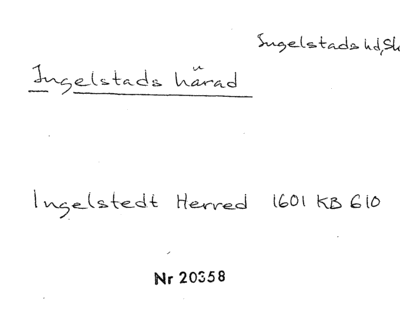 Ingelstads hd, Sk
Ingelstads härad
Ingelstedt Herred 1601 KB 610
Nr 20358